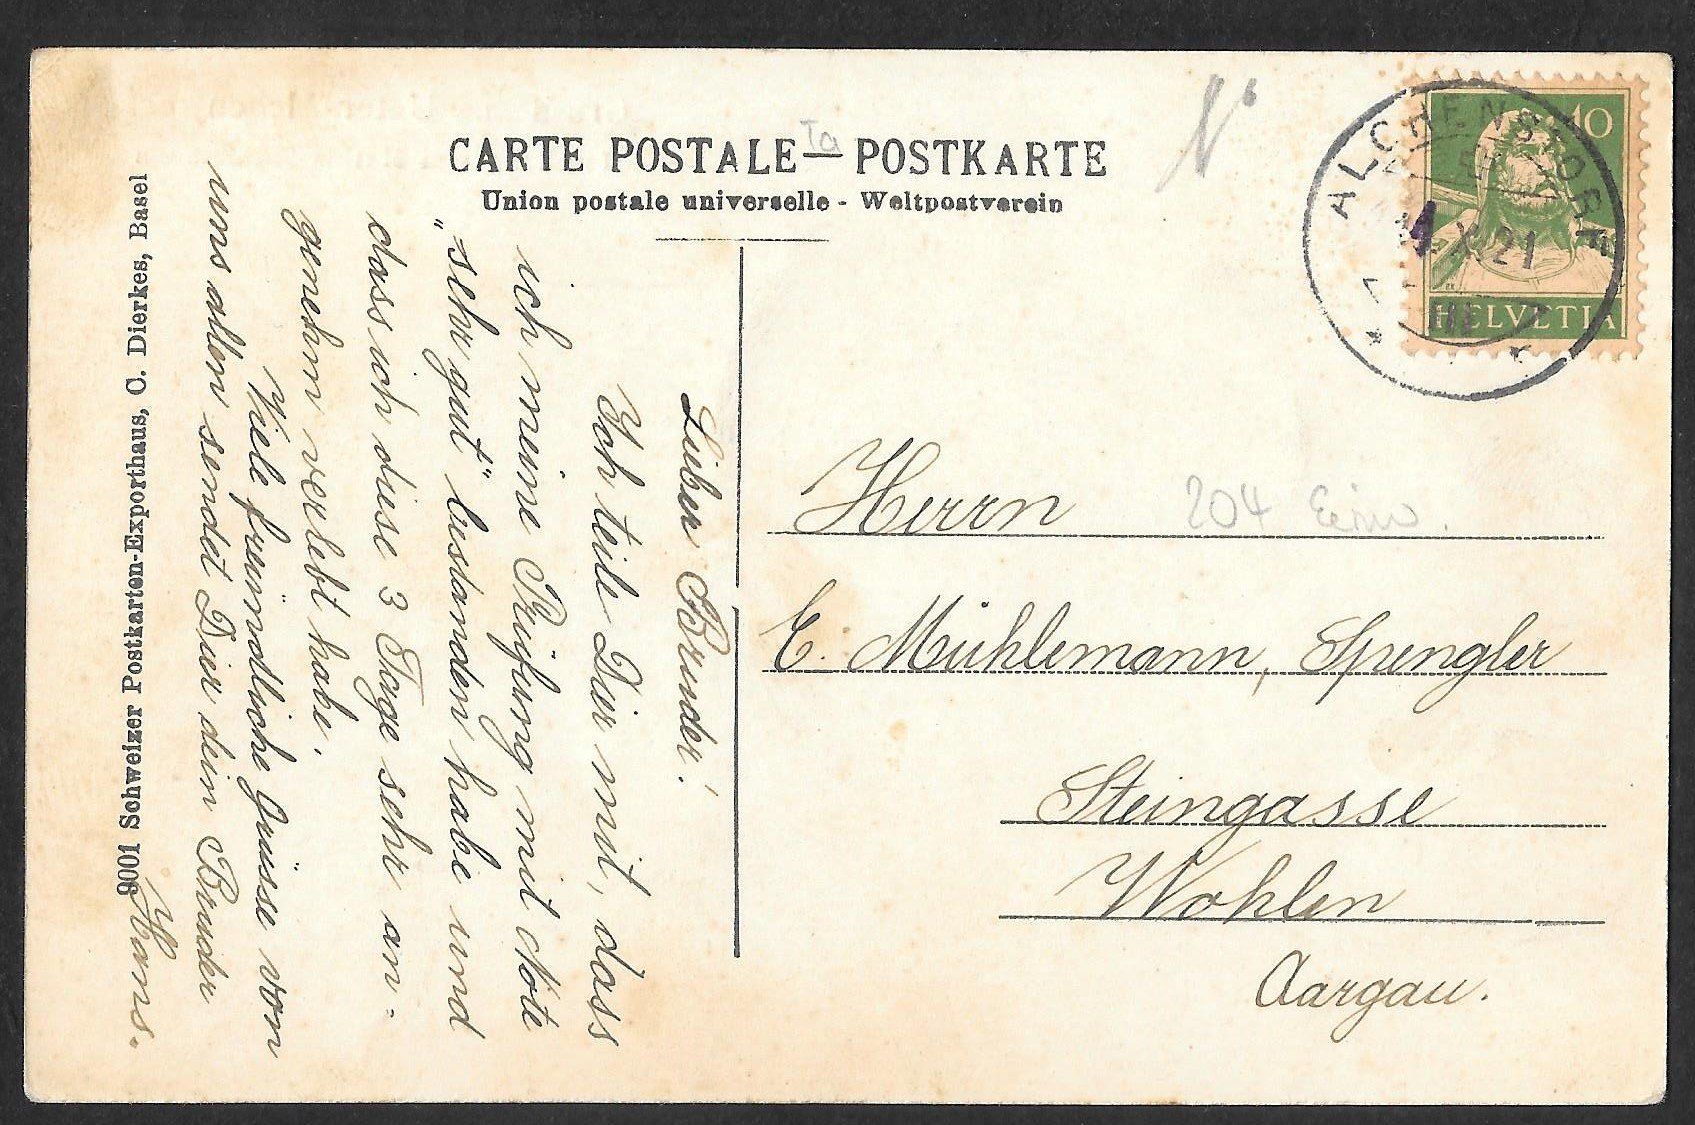 CARTE POSTALE — POSTKARTE
Union postale universelle - Weltpostverein
Lieber Bruder!
Ich teile Dir mit, dass
ich meine Prüfung mit Note
„sehr gut“ bestanden habe und
dass ich diese 3 Tage sehr an-
genehm verlebt habe.
Viele freundliche Grüsse von
uns allen sendet Dir dein Bruder
Hans.
9001 Schweizer Postkarten-Exporthaus, C. Dierkes, Basel
10
HELVETIA
ALCHENSTORF
X. 21
204
Herrn
E. Mühlemann, Spengler
Steingasse
Wohlen
Aargau.